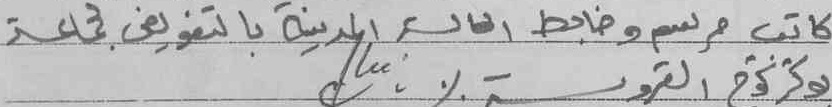 كاتب مرسم وضابط الحالة المدنية بالتفويض بجماعة
بوكركوح القروية